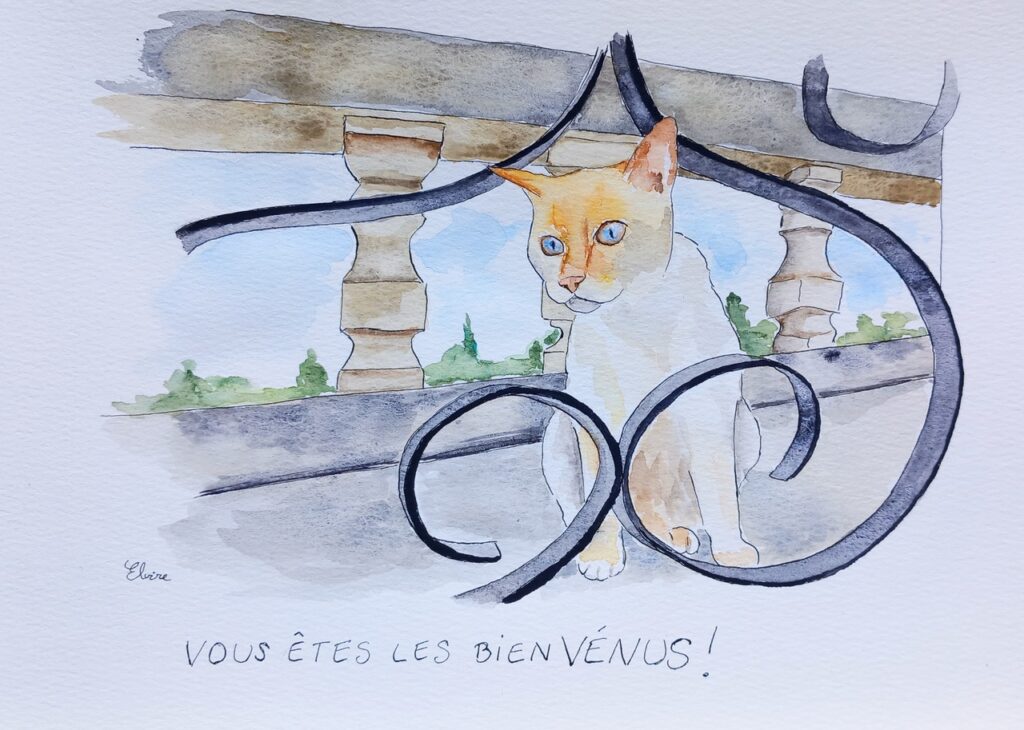 Elvire
VOUS ÊTES LES BIENVÉNUS!